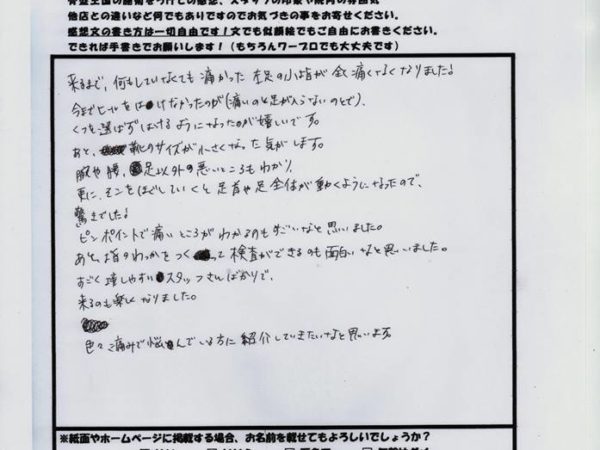 骨盤王国の施術を受けての感想、スタッフの印象や院内の雰囲気
他店との違いなど何でもありですのでお気づきの事をお寄せください。
感想文の書き方は一切自由です！文でも似顔絵でもご自由にお書きください。
できれば手書きでお願いします！（もちろんワープロでも大丈夫です）
来るまで、何もしていなくても痛かった左足の小指が全く痛くなくなりました！
今までヒールをはけなかったのが（痛いのと足が入らないのとで）、
くつを選ばずはけるようになったのが嬉しいです。
あと、靴のサイズが小さくなった気がします。
腕や腰、足以外の悪いところもわかり、
更に、そこをほぐしていくと足首や足全体が動くようになったので、
驚きでした！
ピンポイントで痛いところがわかるのもすごいなと思いました。
あと、指のわっかをつくって検査ができるのも面白いなと思いました。
すごく話しやすいスタッフさんばかりで、
来るのも楽しくなりました。
色々な痛みで悩んでいる方に紹介していきたいなと思います。
※紙面やホームページに掲載する場合、お名前を載せてもよろしいでしょうか？